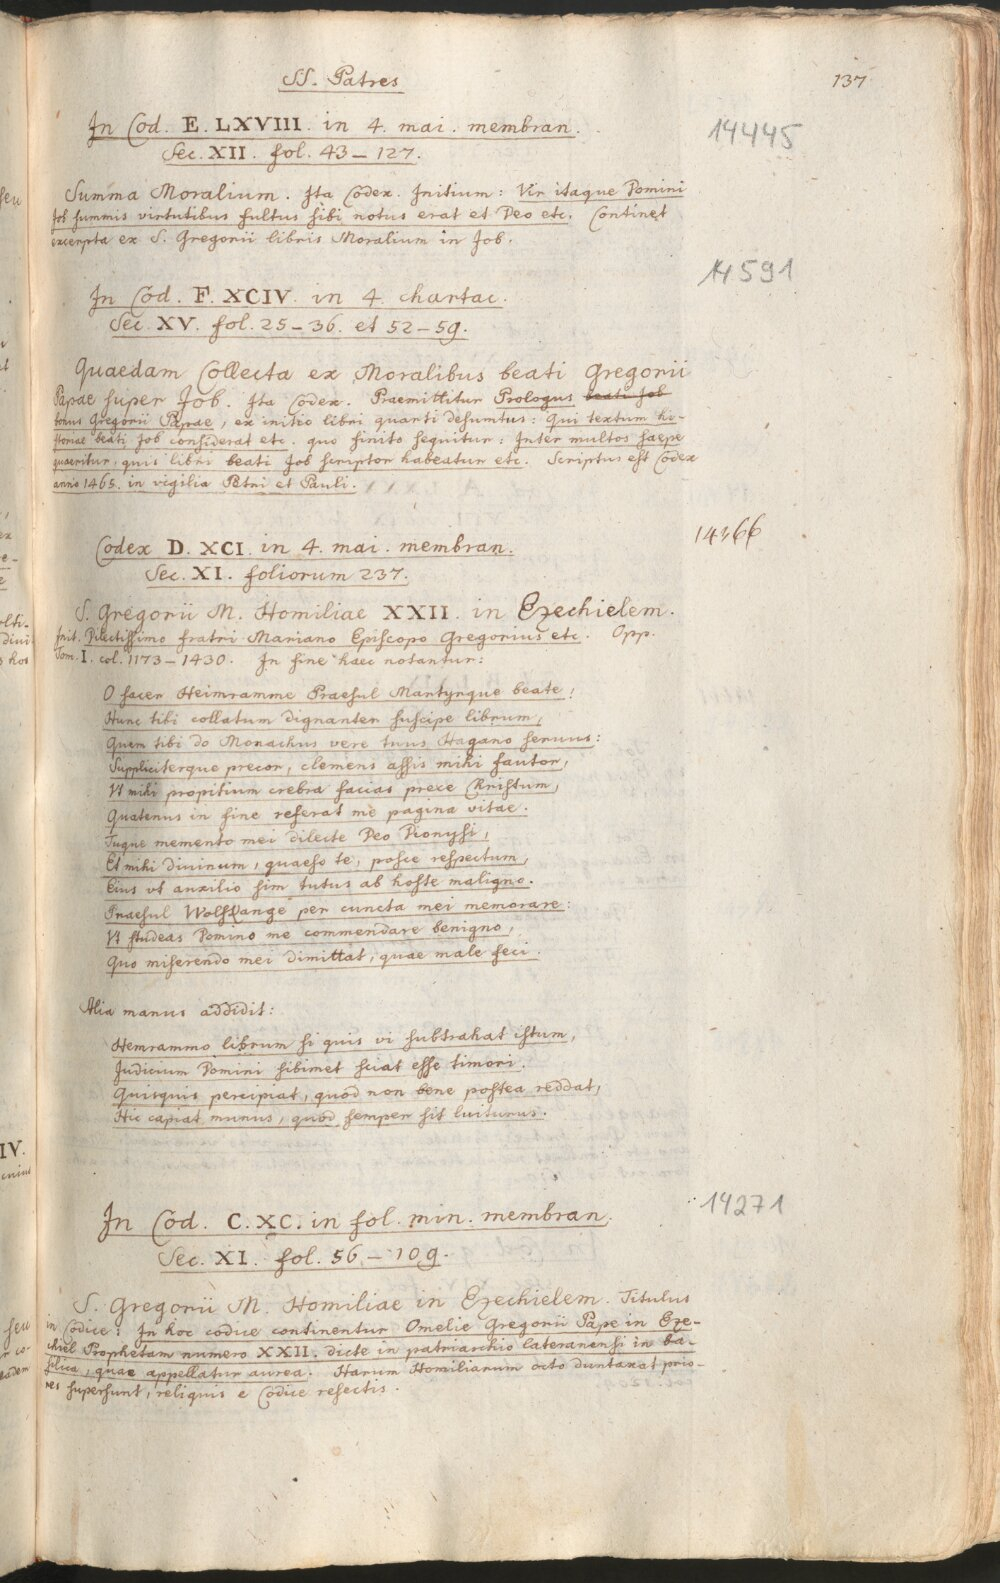 SS. Patres
137
In Cod. E. LXVIII. in 4. mai. membran.
14445
Sec. XII. fol. 43–127.
Summa Moralium. Ita Codex. Initium: Vir itaque Domini
Job summis virtutibus fultus sibi notus erat et Deo etc. Continet
excerpta ex S. Gregorii libris Moralium in Job.
14591
In Cod. F. XCIV. in 4. chartac.
Sec. XV. fol. 25–36. et 52–59.
Quaedam Collecta ex Moralibus beati Gregorii
Papae super Job. Ita Codex. Praemittitur Prologus beati Job
Gregorii Papae, ex initio libri quarti desumtus: Qui textum hi-
storiae beati Job considerat etc. quo finito sequitur: Inter multos saepe
quaeritur, quis libri beati Job scriptor habeatur etc. Scriptus est Codex
anno 1465. in vigilia Petri et Pauli.
14366
Codex D. XCI. in 4. mai. membran.
Sec. XI. foliorum 237.
S. Gregorii M. Homiliae XXII. in Ezechielem.
Init. Dilectissimo fratri Mariano Episcopo Gregorius etc. Opp.
Tom. I. col. 1173–1430. In fine haec notantur:
O sacer Heimramme Praesul Martyrque beate!
Hunc tibi collatum dignanter suscipe librum,
Quem tibi do Monachus vere tuus Hagano servus:
Suppliciterque precor, clemens assis mihi fautor,
Vt mihi propitium crebra facias prece Christum,
Quatenus in fine referat me pagina vitae.
Tuque memento mei dilecte Deo Dionysi,
Et mihi divinum, quaeso te, posce respectum,
Eius vt auxilio sim tutus ab hoste maligno.
Praesul Wolfkange per cuncta mei memorare:
Vt studeas Domino me commendare benigno,
Quo miserendo mei dimittat, quae male feci.
Alia manus addidit:
Hemrammo librum si quis vi subtrahat istum,
Judicium Domini sibimet sciat esse timori.
Quisquis percipiat, quod non bene postea reddat,
Hic capiat munus, quod semper sit luiturus.
14271
In Cod. C. XC. in fol. min. membran.
Sec. XI. fol. 56–109.
S. Gregorii M. Homiliae in Ezechielem. Titulus
in Codice: In hoc codice continentur Omelie Gregorii Pape in Eze-
chiel Prophetam numero XXII. dicte in patriarchio lateranensi in ba-
silica, quae appellatur aurea. Harum Homiliarum octo duntaxat prio-
res supersunt, reliquis e Codice resectis.